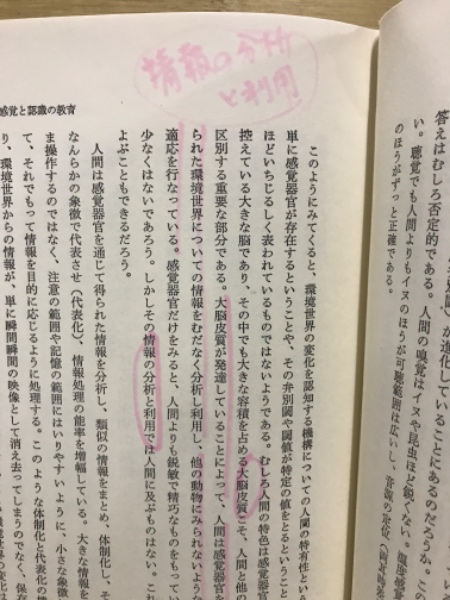 情報の分析
と利用
感覚と認識の教育
このようにみてくると、環境世界の変化を認知する機構についての人間の特有性という
単に感覚器官が存在するということや、その弁別閾や閾値が特定の値をとるということ
ほどいちじるしく表われているものではないようである。むしろ人間の特色は感覚器官
控えている大きな脳であり、その中でも大きな容積を占める大脳皮質こそ、人間と他の
区別する重要な部分である。大脳皮質が発達していることによって、人間は感覚器官
られた環境世界についての情報をむだなく分析し利用し、他の動物にみられないような
適応を行なっている。感覚器官だけをみると、人間よりも鋭敏で精巧なものをもってい
少なくはないであろう。しかしその情報の分析と利用では人間に及ぶものはない。これ
よぶこともできるだろう。
人間は感覚器官を通じて得られた情報を分析し、類似の情報をまとめ、体制化し、そ
なんらかの象徴で代表させ（代表化）、情報処理の能率を増幅している。大きな情報を
ま操作するのではなく、注意の範囲や記憶の範囲にはいりやすいように、小さな象徴
て、それでもって情報を目的に応じるように処理する。このような体制化と代表化の
り、環境世界からの情報が、単に瞬間瞬間の映像として消え去ってしまうのでなく、保存
答えはむしろ否定的である。人間の嗅覚はイヌや昆虫ほど鋭くない。
い。聴覚でも人間よりもイヌのほうが可聴範囲は広いし、音源の定位
のほうがずっと正確である。
が進化していることにあるのだろうか。この